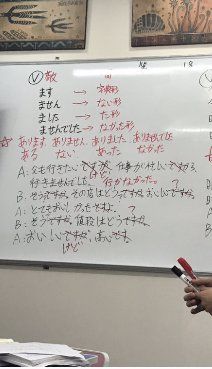 Ⓥ 敬
ます → 字典形
ません → ない形
ました → た形
ませんでした → なかった形
☆ あります ありません ありました ありませんでした
ある ない あった なかった
A: 行きたいですが、仕事が忙しいですから
けど
行きませんでした。行かなかった。
B: そうですか。その店はどうですか。おいしいですか。?
A: とてもおいしかったですよ。?
B: そうですか。値段はどうですか。
A: おいしいですが、高いです。
けど